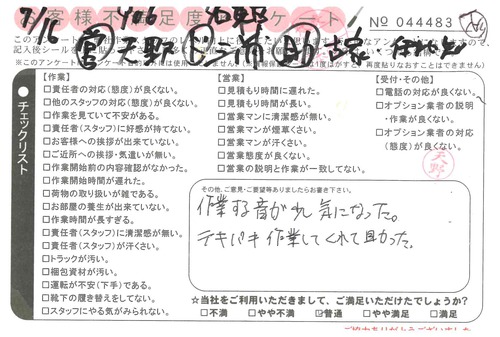 7/16
お客様不満足度アンケート
No 044483
天野
助
チェックリスト
【作業】
□責任者の対応(態度)が良くない。
□他のスタッフの対応(態度)が良くない。
□作業を見ていて不安がある。
□責任者(スタッフ)に好感が持てない。
□お客様への挨拶が出来ていない。
□ご近所への挨拶・気遣いが無い。
□作業開始前の内容確認がなかった。
□作業開始時間が遅れた。
□荷物の取り扱いが雑である。
□お部屋の養生が出来ていない。
□作業時間が長すぎる。
□責任者(スタッフ)に清潔感が無い。
□責任者(スタッフ)が汗くさい。
□トラックが汚い。
□梱包資材が汚い。
□運転が不安(下手)である。
□靴下の履き替えをしてない。
□スタッフにやる気がみられない。
【営業】
□見積もり時間に遅れた。
□見積もり時間が長い。
□営業マンに清潔感が無い。
□営業マンが煙草くさい。
□営業マンが汗くさい。
□営業態度が良くない。
□営業の説明と作業が一致してない。
【受付・その他】
□電話の対応が良くない。
□オプション業者の説明
・作業が良くない。
□オプション業者の対応
(態度)が良くない。
天野
その他、ご意見・ご要望等ありましたらお書き下さい。
作業する音がれ気になった。
テキパキ作業してくれて助かった。
☆当社をご利用いただきまして、ご満足いただけたでしょうか?
□不満 □やや不満 ☑普通 □やや満足 □満足
ご協力ありがとうございました